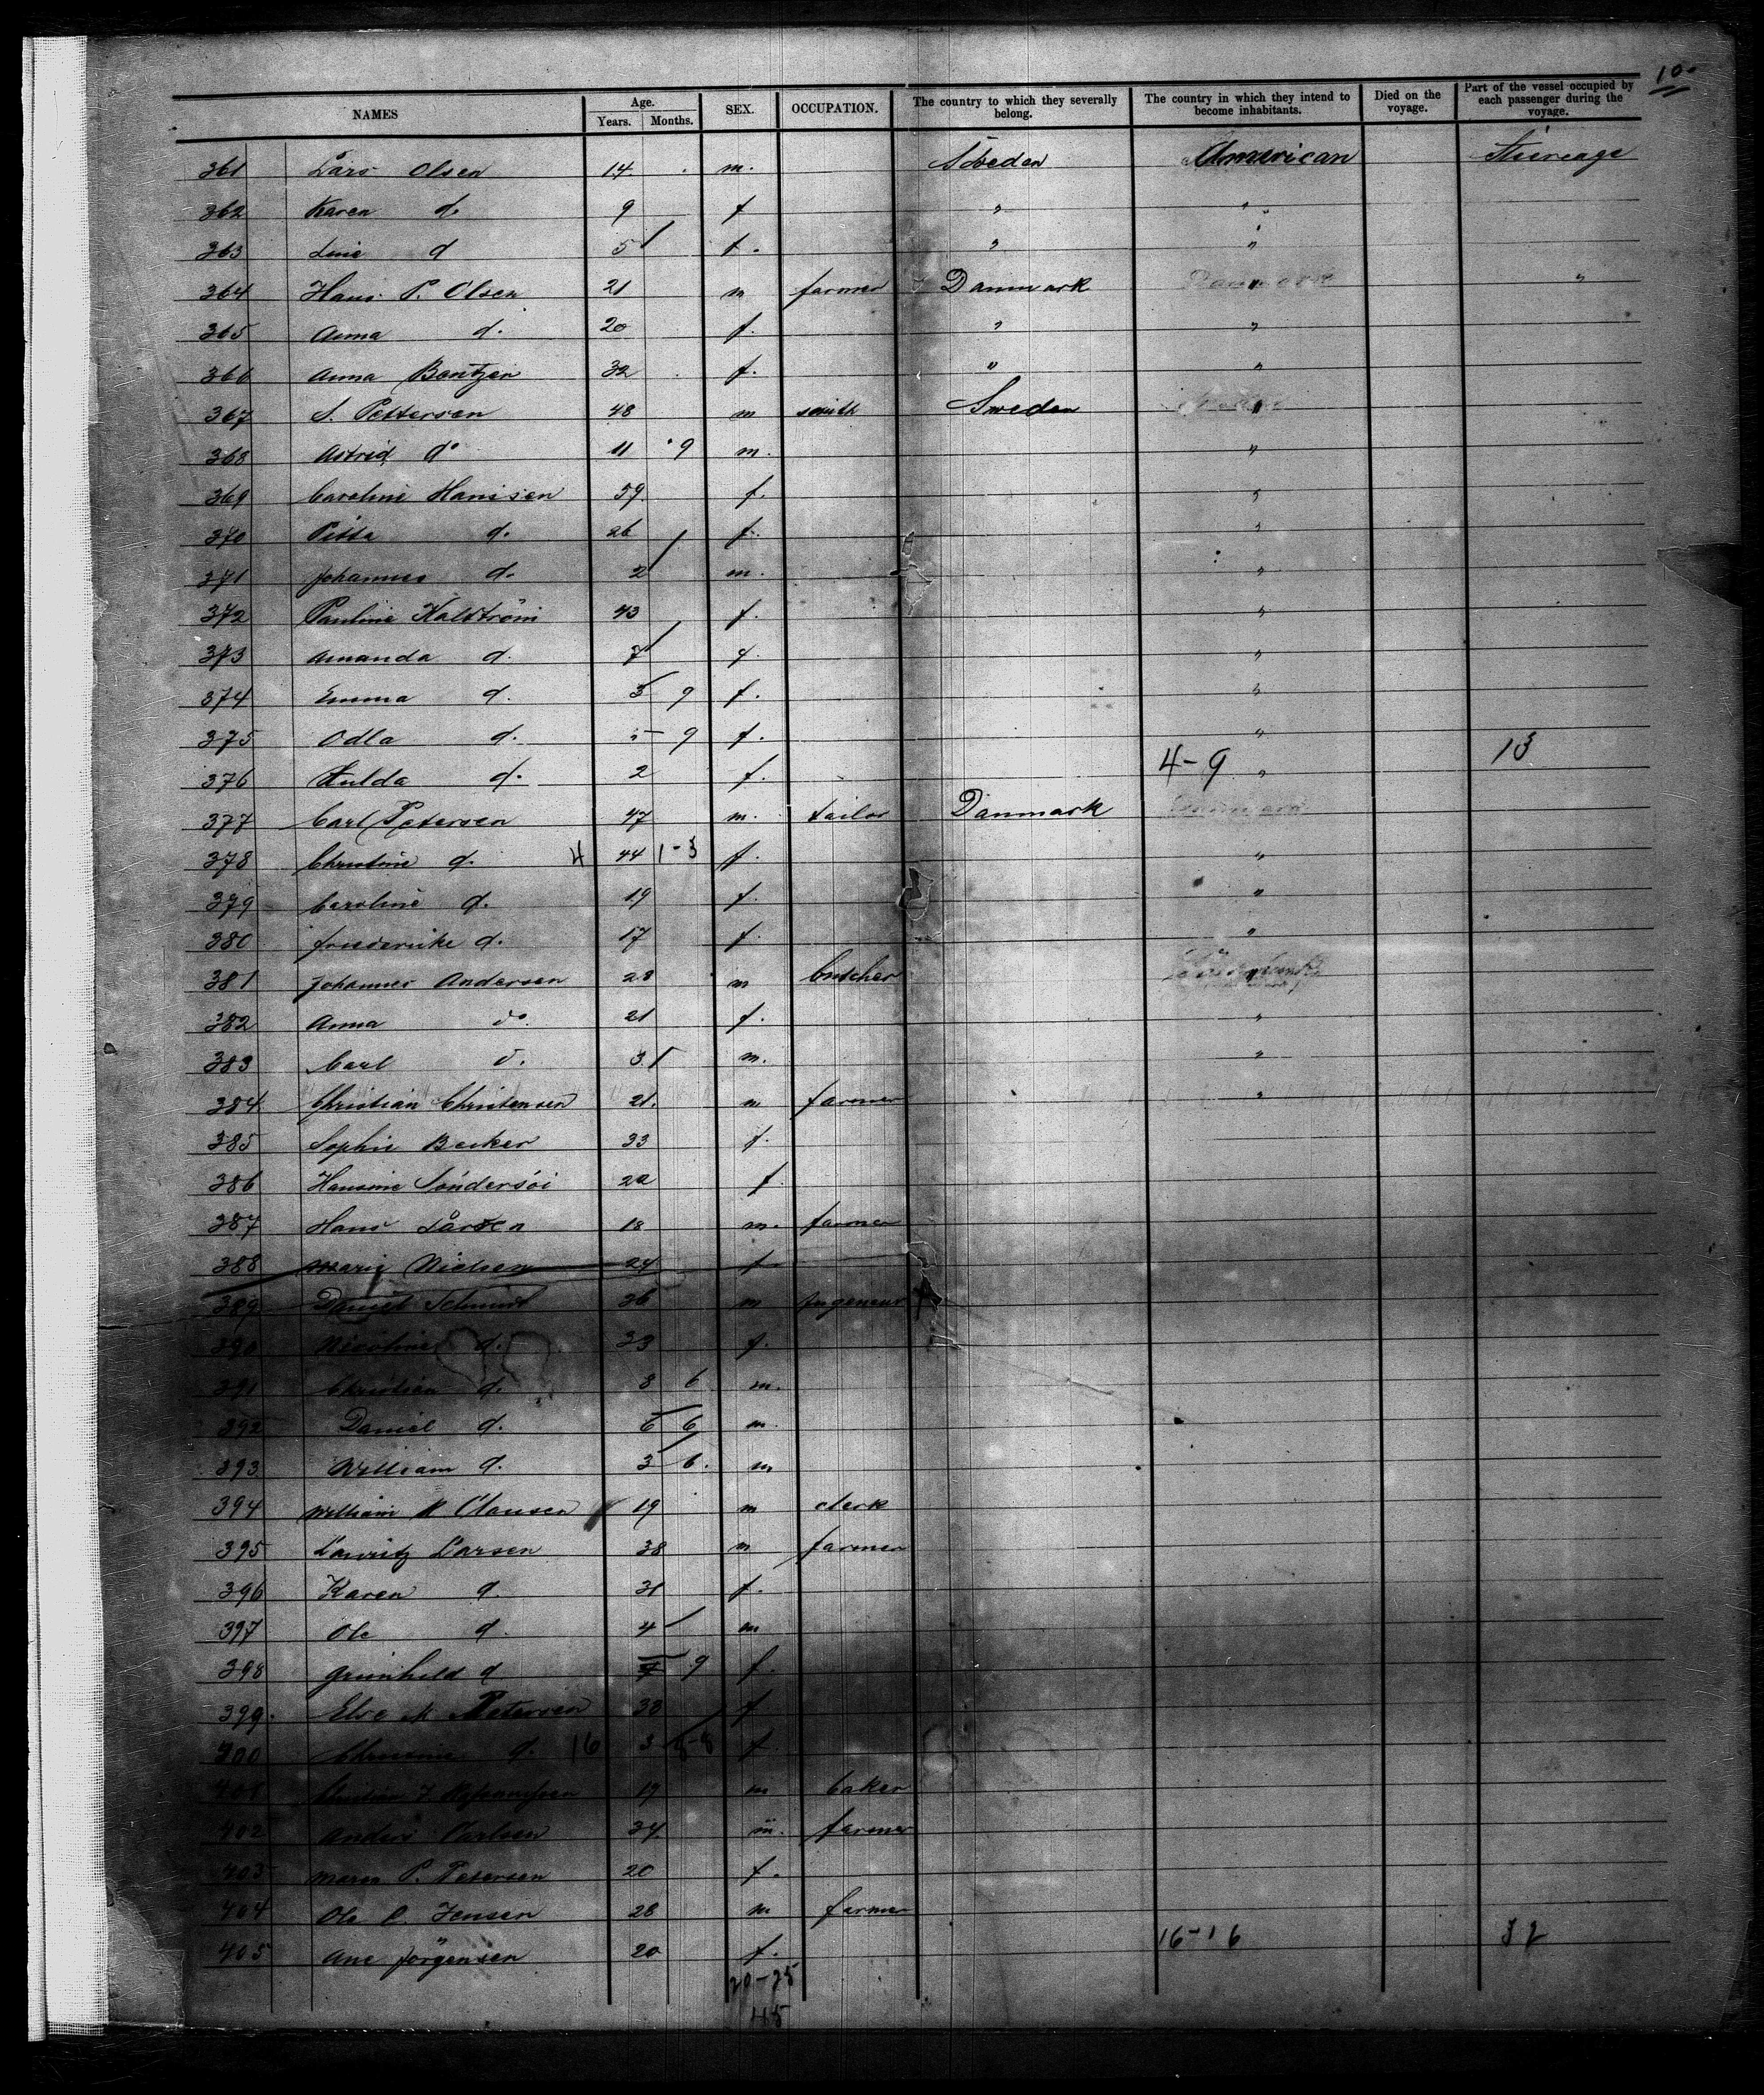 10.
NAMES Age. Years. Months. SEX. OCCUPATION. The country to which they severally belong. The country in which they intend to become inhabitants. Died on the voyage. Part of the vessel occupied by each passenger during the voyage.
361 Lars Olsen 14 m. Sweden American Steerage
362 Karen d. 9 f " "
363 Line d 5 f. " "
364 Hans P. Olsen 21 m farmer Danmark " "
365 Anna d. 20 f. " "
366 Anna Bentzen 32 f. " "
367 S. Pettersen 48 m smith Sweden "
368 Astrid do 11 9 m. "
369 Caroline Hansen 59. f. "
370 d. 26 f. "
371 Johannes d. 2 m. "
372 Pauline Kalström 43 f. "
373 Amanda d. 7 f. "
374 Emma d. 3 9 f. "
375 Odla d. 9 f. "
376 Hulda d. 2 f. 4-9 " 13
377 Carl Petersen 47 m. tailor Danmark
378 Christine d. 4 44 1-3 f. "
379 Caroline d. 19 f. "
380 Friedericke d. 17 f. "
381 Johannes Andersen 28 m butcher
382 Anna do. 21 f. "
383 Carl d. 3 m. "
384 Christian Christensen 21. m farmer "
385 Sophie Becker 33 f.
386 Hansine Söndersöi 22 f.
387 Hans Larsen 18 m. farmer
388 Marie Nielsen 24 f.
389 Daniel Schmidt 36 m Ingenieur
390 Nicoline d. 33 f.
391 Christian d. 8 6 m.
392 Daniel d. 6 6 m.
393 William d. 3 6. m
394 William Clausen 19 m clerk
395 Lauritz Larsen 38 m farmer
396 Karen d. 31 f.
397 Ole d. 4 m
398 Grimhild d 9 f.
399. Else M Petersen 38 f
400 Christine d. 16 3 8-8 f.
401 Christian F. 19 m baker
402 Anders Carlsen 34. m. farmer
403 Maren P. Petersen 20 f.
404 Ole C. Jensen 28 m farmer
405 Ane Jörgensen 20 f. 16-16 32
20-25
45